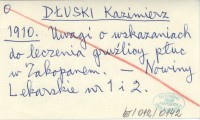 DŁUSKI Kazimierz
1910. Uwagi o wskazaniach
do leczenia gruźlicy płuc
w Zakopanem. — Nowiny
Lekarskie nr 1 i 2.